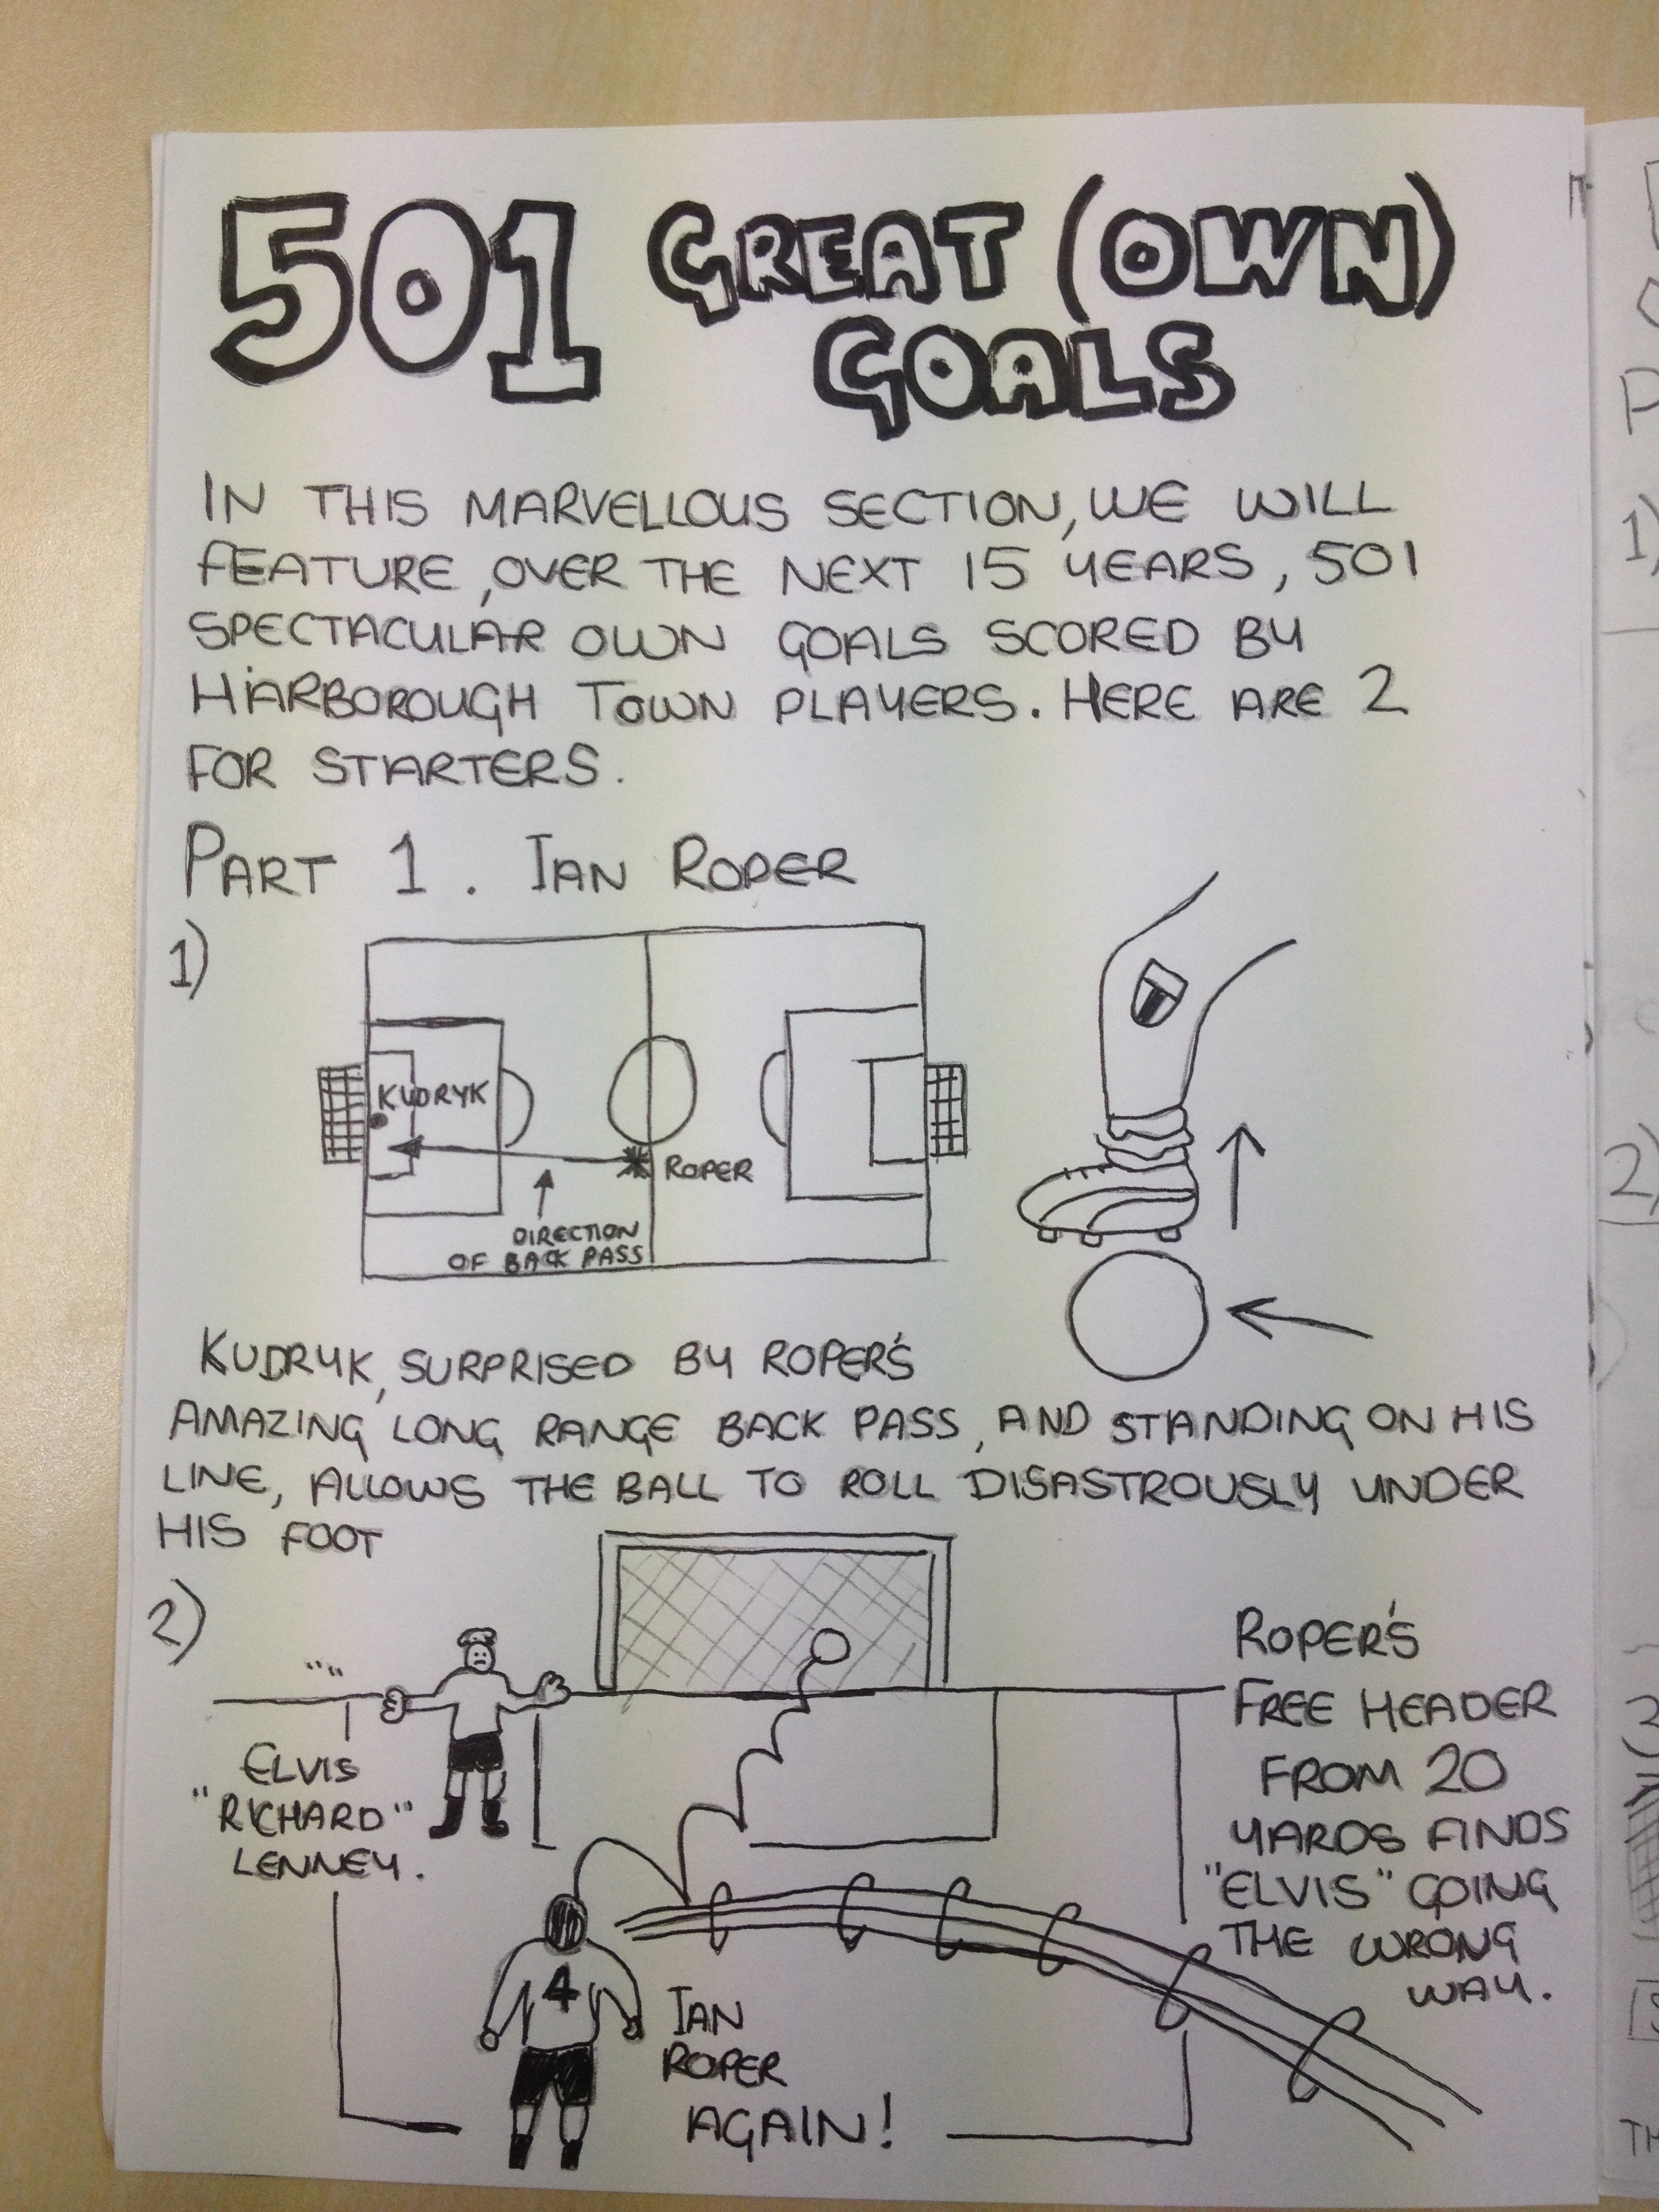 501 GREAT (OWN)
GOALS
IN THIS MARVELLOUS SECTION, WE WILL
FEATURE, OVER THE NEXT 15 YEARS, 501
SPECTACULAR OWN GOALS SCORED BY
HARBOROUGH TOWN PLAYERS. HERE ARE 2
FOR STARTERS.
PART 1. IAN ROPER
1)
KUDRYK
ROPER
DIRECTION
OF BACK PASS
KUDRYK, SURPRISED BY ROPER'S
AMAZING LONG RANGE BACK PASS, AND STANDING ON HIS
LINE, ALLOWS THE BALL TO ROLL DISASTROUSLY UNDER
HIS FOOT
2)
ELVIS
"RICHARD"
LENNEY.
ROPER'S
FREE HEADER
FROM 20
YARDS FINDS
"ELVIS" GOING
THE WRONG
WAY.
4
IAN
ROPER
AGAIN!
1)
2)